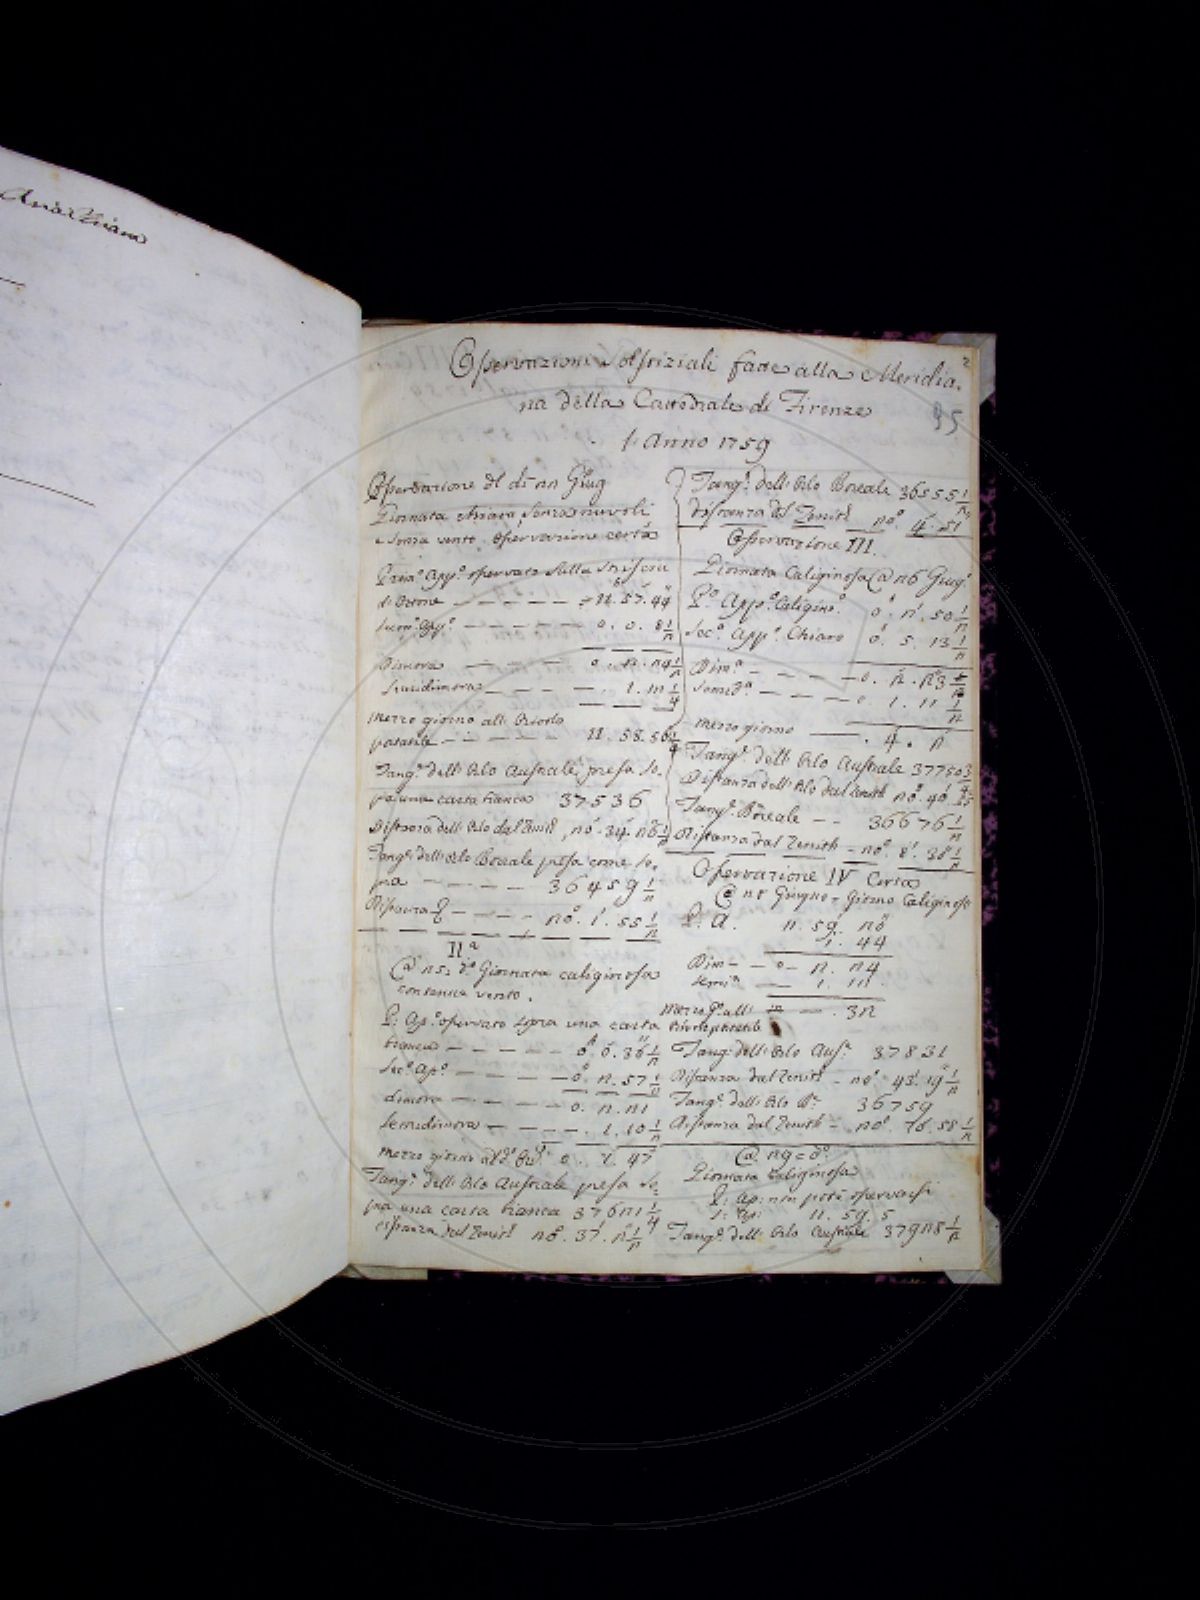 2
Osservazioni Solstiziali fatte alla Meridia-
na della Cattedrale di Firenze
95
l'Anno 1759
Osservazione del dì 22 Giug
Giornata chiara, senza nuvoli
e senza vento. Osservazione certa
Prim.º App.º osservato sulla
di Ottone — — — — 11. 57. 44
Secon. App.º — — — — 0. 0. 8 1/2
Dimora — — — 0. 2. 24 1/2
Semidimora — — — 1. 12 1/4
Mezzo giorno all' Oriolo
portatile — — — — 11. 58. 56 1/4
Tang.e dell' Orlo Australe presa so-
pra una carta bianca 37536
Distanza dell' Orlo dal Zenit
Tang.e dell' Orlo Boreale presa come so-
pra — — — — 36459 1/2
Distanza — — — 20. 1. 55 1/2
II.a
@ 25 d.º Giornata caliginosa
con vento.
P: Ap.º osservato sopra una carta
bianca — — — — 0. 0. 36 1/2
Sec.º Ap.º — — — — 0. 2. 57 1/2
dimora — — — — 0. 2. 21
Semidimora — — — . 1. 10 1/2
Mezzo giorno 0. 1. 47
Tang.e dell' Orlo Australe presa so-
pra una carta bianca 37621 1/4
distanza dal Zenit 20. 37. 2 1/2
Tang.e dell' Orlo Boreale 36555 1/2
distanza dal Zenit 20. 4. 51
Osservazione III.
Giornata Caliginosa @ 26 Giug.º
P.º App.º Caligino.º 0. 2. 50 1/2
Sec.º App.º Chiaro 0. 5. 13 1/2
Dim.a — — — 0. 2. 23
Semid.a — — — 0. 1. 11 1/2
Mezzo giorno — . 4. 2
Tang.e dell' Orlo Australe 37750 3/4
Distanza dell' Orlo dal Zenith 20. 40. 25
Tang.e Boreale — — 36676 1/2
Distanza dal Zenith — 20. 8. 38 1/2
Osservazione IV Certa
@ 28 Giugno = Giorno Caliginoso
P. A. 11. 59. 20
1. 44
Dim — — 0 — 2. 24
Semi.a — — 1. 12
Mezzo G.º all' — . 32
Oriolo portatile
Tang.e dell' Orlo Aus.e 37831
Distanza dal Zenit — 20. 43. 19 1/2
Tang.e dell' Orlo B.e 36759
Distanza dal Zenith —
@ 29 = d.º
Giornata Caliginosa
P: Ap: non potè osservarsi
S: Ap: 11. 59. 5
Tang.e dell' Orlo Australe 37928 1/2